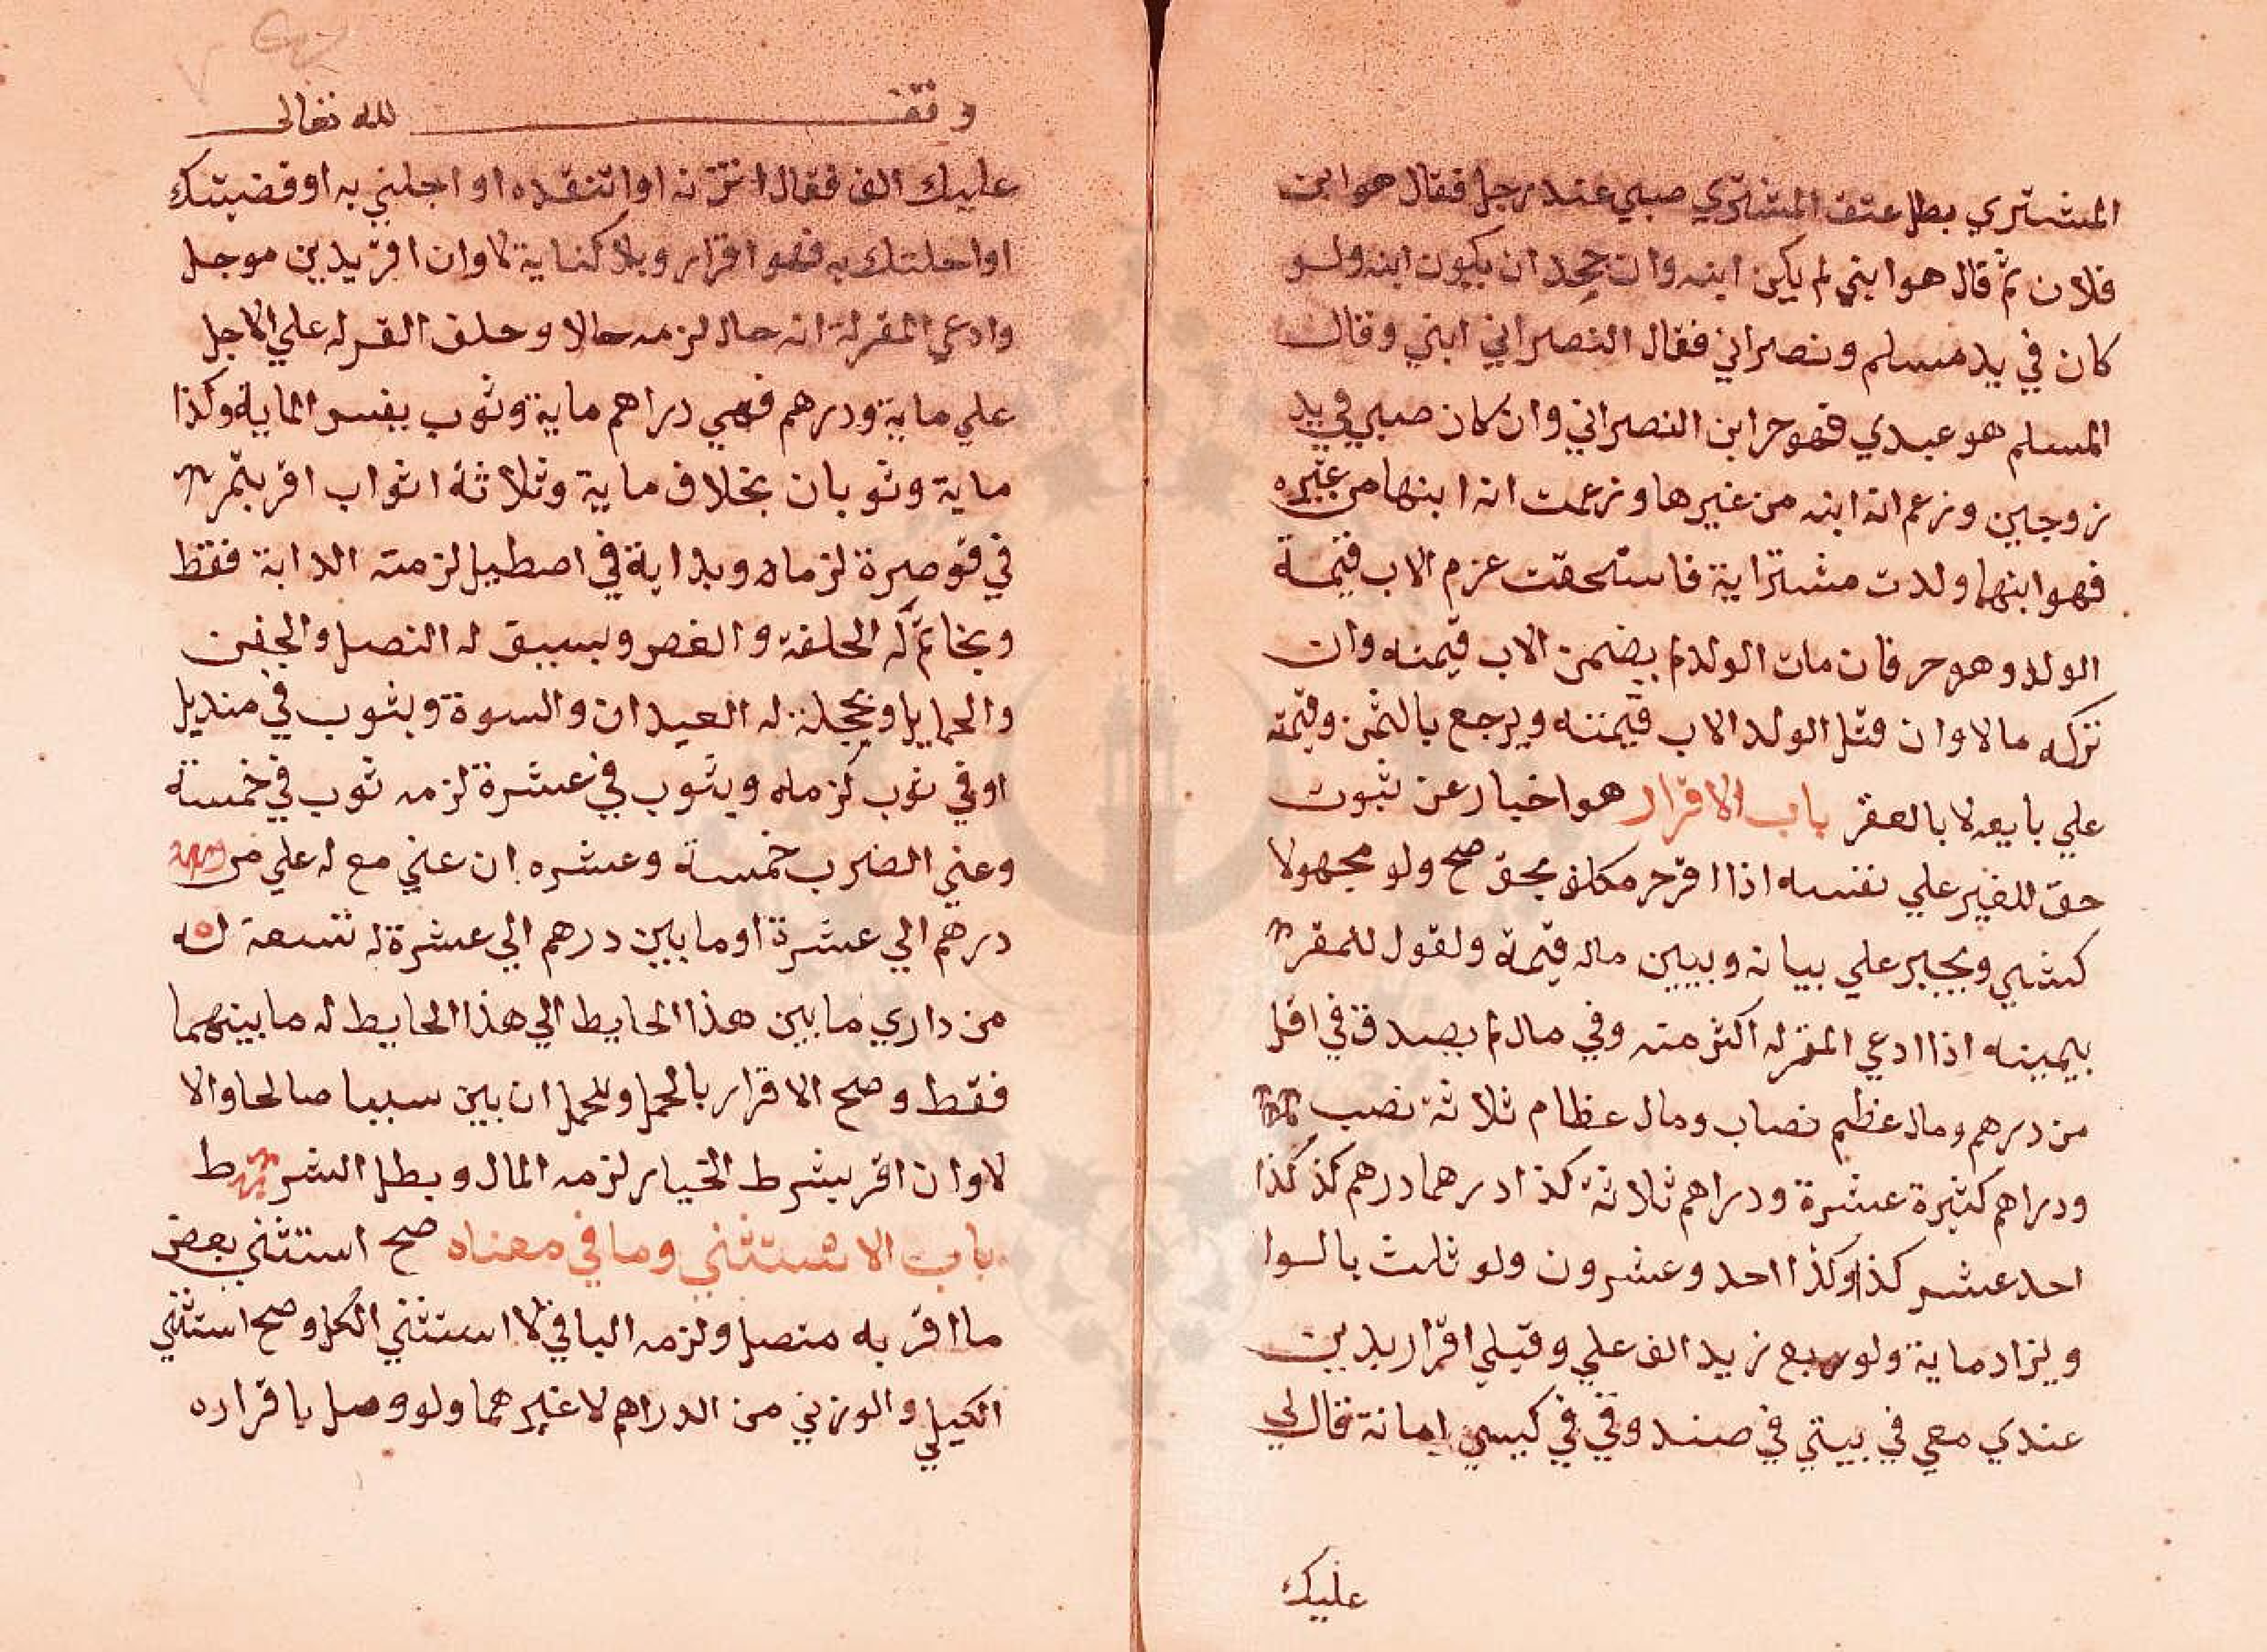 المشتري بطل عتق المشتري صبي عند رجل فقال هو ابن
فلان ثم قال هو ابني لم يكن ابنه وان جحد ان يكون ابنه ولو
كان في يد مسلم ونصراني فقال النصراني ابني وقال
المسلم هو عبدي فهو حر ابن النصراني وان كان صبي في يد
زوجين وزعم انه ابنه من غيرها وزعمت انه ابنها من غيره
فهو ابنهما ولدت مشتراية فاستحقت غرم الاب قيمة
الولد وهو حر فان مات الولد لم يضمن الاب قيمته وان
ترك مالا وان قتل الولد الاب قيمته ويرجع بالثمن وقيمته
علي بايعه لا بالعقر باب الاقرار هو اخبار عن ثبوت
حق للغير علي نفسه اذا اقر حر مكلف بحق صح ولو مجهولا
كشي ويجبر علي بيانه ويبين ماله قيمة ولقول للمقر
بيمينه اذا ادعي المقر له اكثر منه وفي مال لم يصدق في اقل
من درهم ومال عظيم نصاب ومال عظام ثلاثة نصب
ودراهم كثيرة عشرة ودراهم ثلاثة كذا درهما درهم كذ كذا
احد عشر كذا وكذا احد وعشرون ولو ثلث بالوا
ويزاد ماية ولو ربع زيد الف علي وقبلي اقرار بدين
عندي معي في بيتي في صندوقي في كيسي امانة قال لي
عليك
وقف لله تعالى
عليك الف فقال اتزنه او اتنقده او اجلني به او قضيتك
او احلتك به فهو اقرار وبلا كناية لا وان اقر بدين موجل
وادعي المقر له انه حال لزمه حالا وحلف القر له علي الاجل
علي ماية ودرهم فهي دراهم ماية وثوب يفسر الماية وكذا
ماية وثوبان بخلاف ماية وثلاثة اثواب اقر بتمر
في قوصرة لزماه وبداية في اصطبل لزمته الدابة فقط
وبخاتم له الحلقة والفص وبسيف له النصل والجفن
والحمايل وبحجلة له العيدان والسوة وبثوب في منديل
او في ثوب لزماه وبثوب في عشرة لزمه ثوب في خمسة
وعني الضرب خمسة وعشره ان عني مع له علي من
درهم الي عشرة او ما بين درهم الي عشرة له تسعة له
من داري ما بين هذا الحايط الي هذا الحايط له ما بينهما
فقط وصح الاقرار بالحمل وللحمل ان بين سببا صالحا والا
لا وان اقر بشرط الخيار لزمه المال وبطل الشرط
باب الاستثني وما في معناه صح استثني بعض
ما اقر به متصل ولزمه الباقي لا استثني الكل وصح استثني
الكيلي والوزني من الدراهم لا غيرهما ولو وصل باقراره